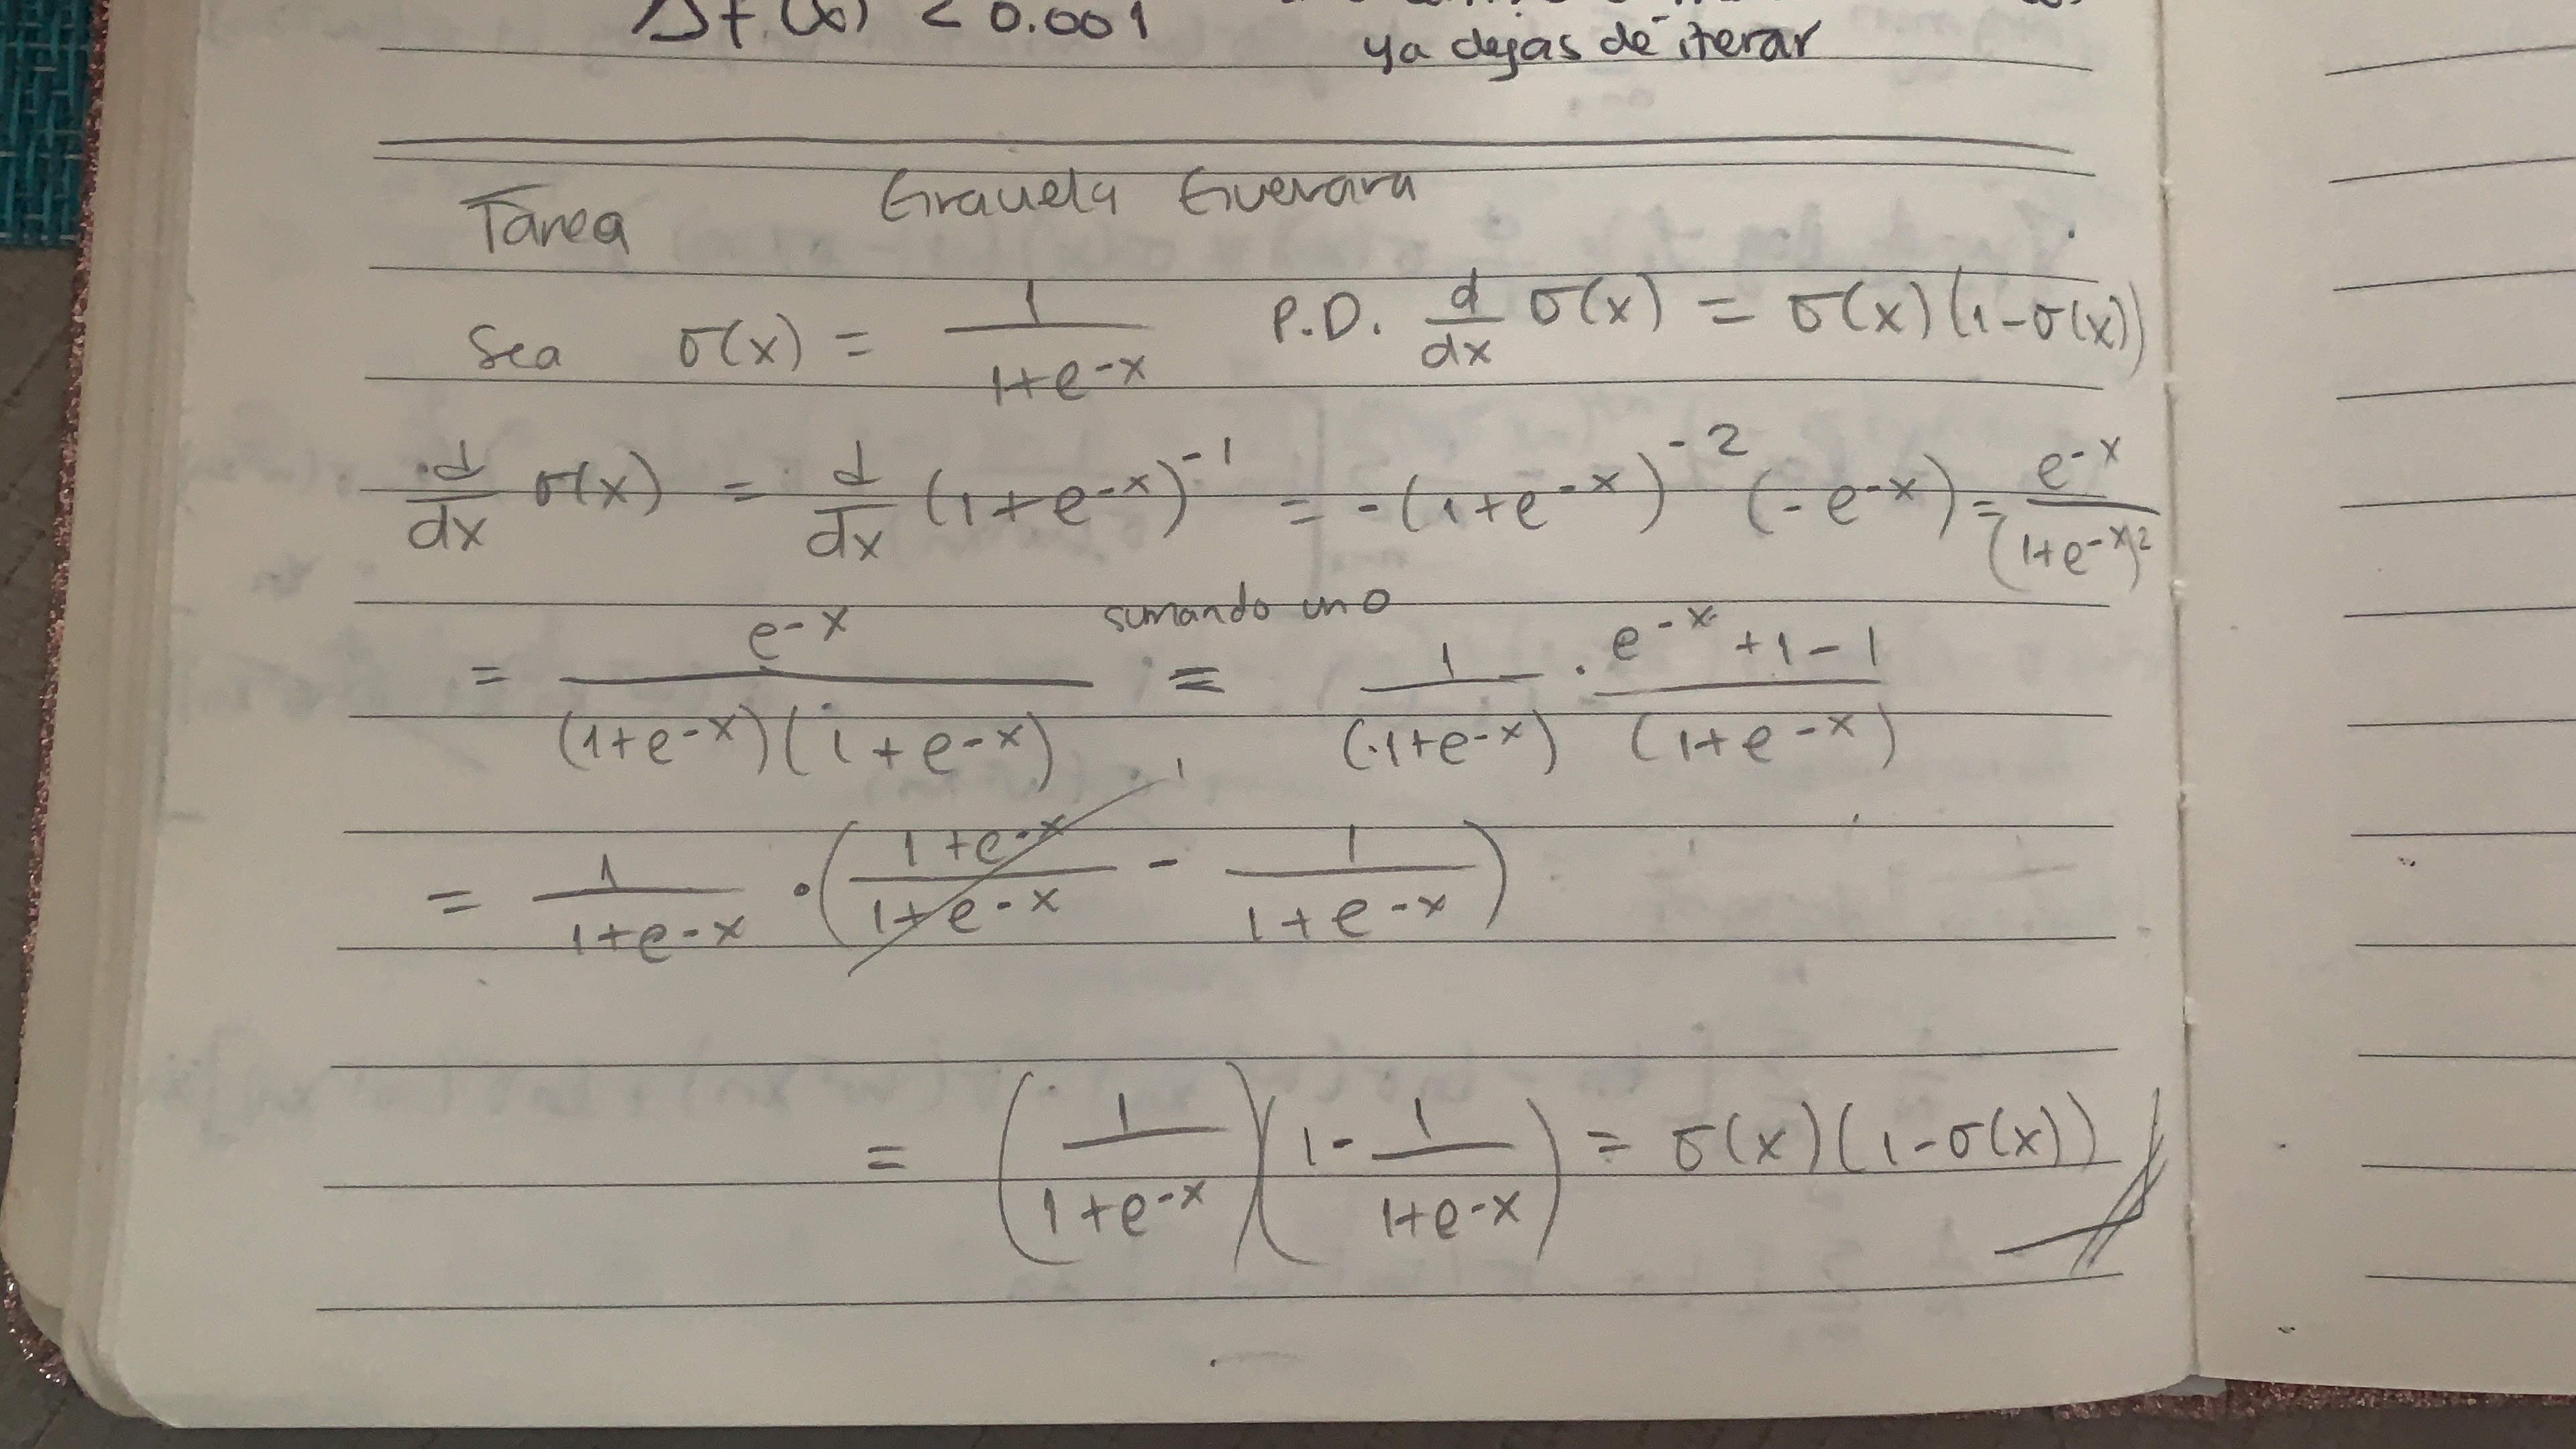 Δf(x) < 0.001
ya dejas de iterar
Tarea Graciela Guevara
Sea σ(x) = 1/(1+e^-x) P.D. d/dx σ(x) = σ(x)(1-σ(x))
d/dx σ(x) = d/dx (1+e^-x)^-1 = -(1+e^-x)^-2 (-e^-x) = e^-x/(1+e^-x)^2
sumando un 0
= e^-x/((1+e^-x)(1+e^-x)) = 1/(1+e^-x) · (e^-x+1-1)/(1+e^-x)
1
= 1/(1+e^-x) · ((1+e^-x)/(1+e^-x) - 1/(1+e^-x))
= (1/(1+e^-x))(1 - 1/(1+e^-x)) = σ(x)(1-σ(x))